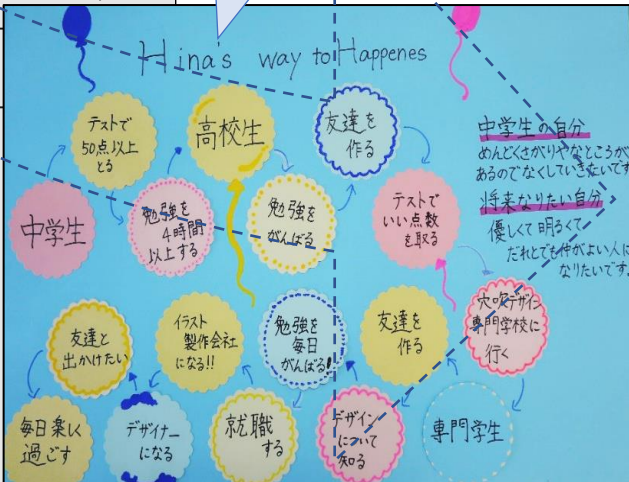 Hina's way to Happenes
中学生
テストで
50点以上
とる
勉強を
4時間
以上する
高校生
勉強を
がんばる
友達を
作る
テストで
いい点数
を取る
中学生の自分
めんどくさがりやなところが
あるのでなくしていきたいです
将来なりたい自分
優しくて明るくて
だれとでも仲がよい人に
なりたいです。
穴吹デザイン
専門学校に
行く
専門学生
友達を
作る
デザイン
について
知る
勉強を
毎日
がんばる!
就職
する
イラスト
製作会社
になる!!
デザイナー
になる
友達と
出かけたい
毎日楽しく
過ごす